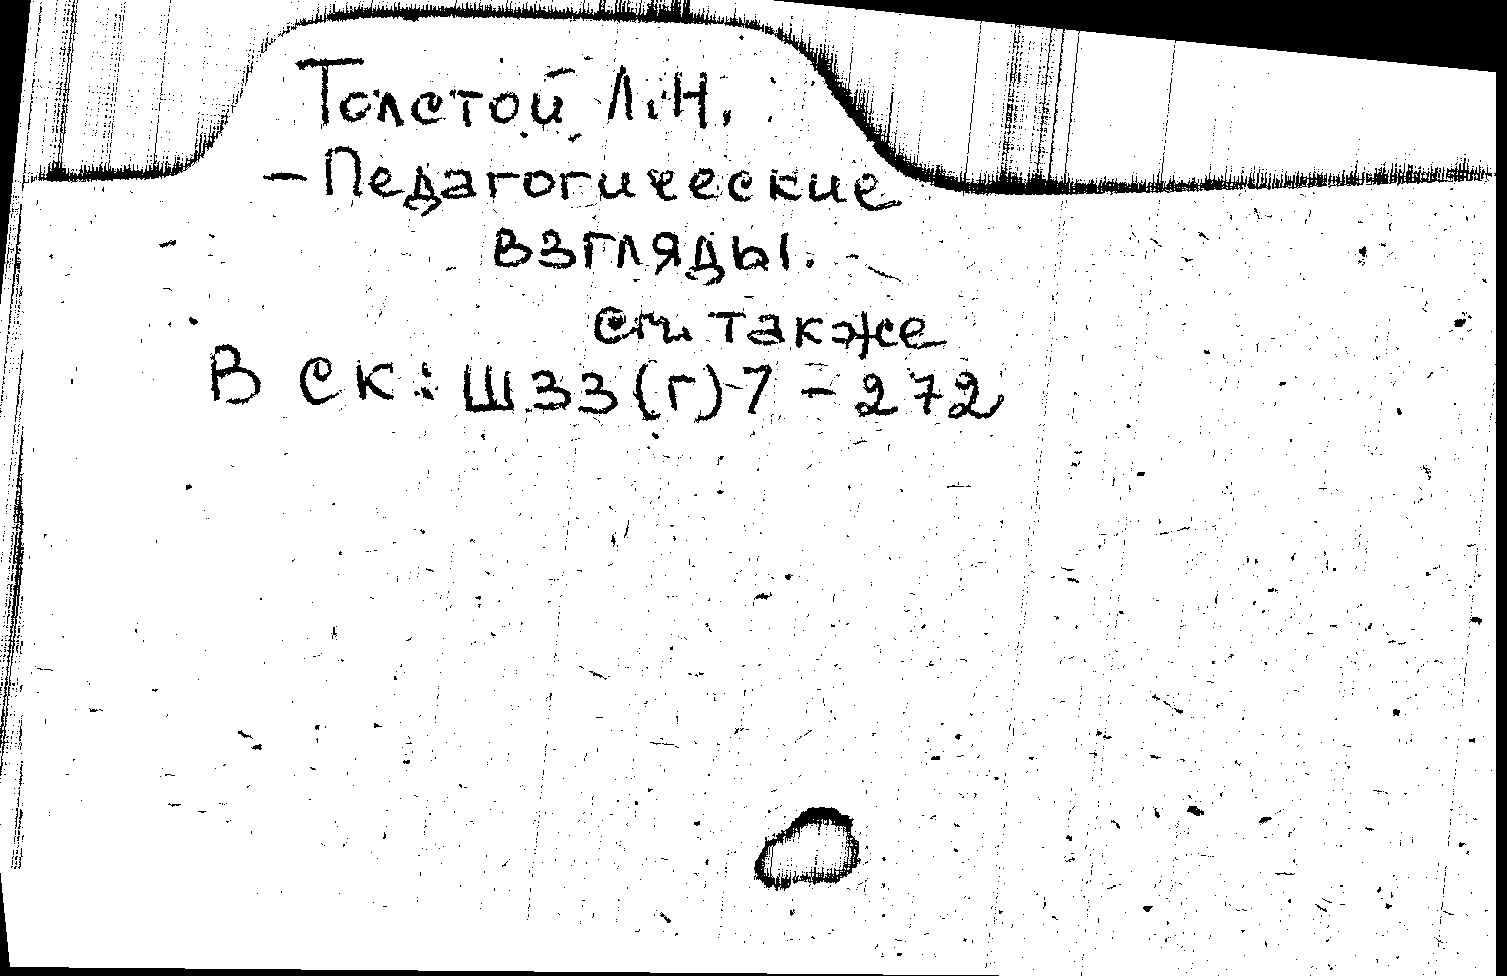 Толстой Л.Н.
- Педагогические
взгляды.
см. также
В СК: Ш33(г)-7 - 272